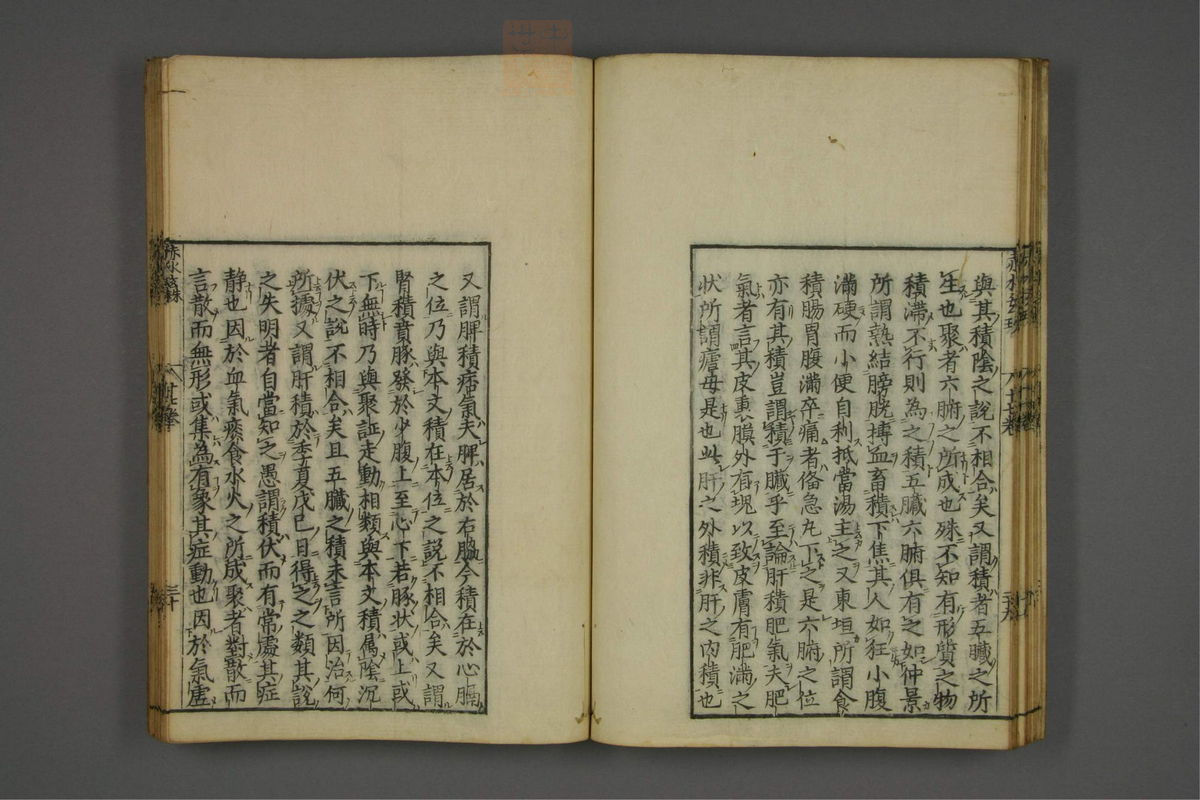 與其積陰之說不相合矣又謂積者五臟之所
生也聚者六腑之所成也殊不知有形質之物
積滯不行則為之積五臟六腑俱有之如仲景
所謂熱結膀胱搏血畜積下焦其人如狂小腹
滿硬而小便自利抵當湯主之又東垣所謂食
積腸胃腹滿卒痛者俻急丸下之是六腑之位
亦有其積豈謂積于臟乎至論肝積肥氣夫肥
氣者言其皮裏膜外有塊以致皮膚有肥滿之
狀所謂瘧母是也此肝之外積非肝之內積也
又謂脾積痞氣夫脾居於右脇今積在於心膈
之位乃與本文積在本位之說不相合矣又謂
腎積賁豚發於少腹上至心下若豚狀或上或
下無時乃與聚証走動相類與本文積属陰沉
伏之說不相合矣且五臟之積未言所因治何
所據又謂肝積於季夏戊己日得之之類其說
之失明者自當知之愚謂積伏而有常處其症
静也因於血氣痰食水火之所成聚者對散而
言散而無形或集為有象其症動也因於氣虛
赤水玄珠
廿七卷
三十